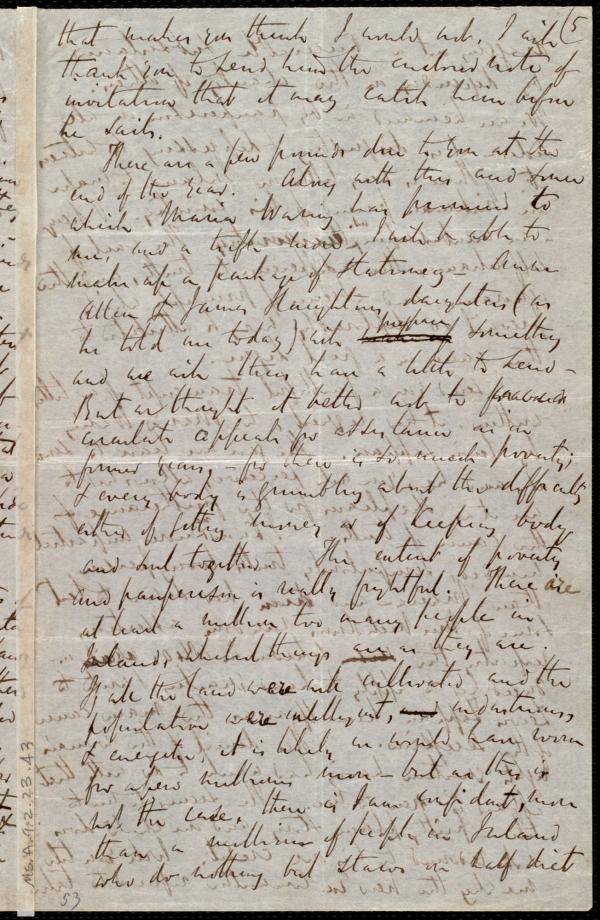 that makes you think I would not. I will (5
thank you to send him the enclosed note of
invitation that it may catch him before
he sails.
There are a few pounds due to you at the
end of the year. Along with this and some
which Maria Waring has promised to
me, and a trifle more I will be able to
make up a package of Stationery — Anne
Allen & James Haughton's daughters (as
he told me today) will prepare something
and we will thus have a little to send —
But we thought it better not to
circulate appeals for assistance as in
former years, — for there is so much poverty,
& every body is grumbling about the difficulty
either of getting money or of keeping body
and soul together. The extent of poverty
and pauperism is really frightful. There are
at least a million too many people in
Ireland, whilst things are as they are.
If all the land were well cultivated and the
population were intelligent, industrious,
& energetic, it is likely we would have room
for a few millions more — but as this is
not the case, there is I am confident, more
than a million of people in Ireland
who do nothing but starve on half diet
53
MS.A.9.2.23.43